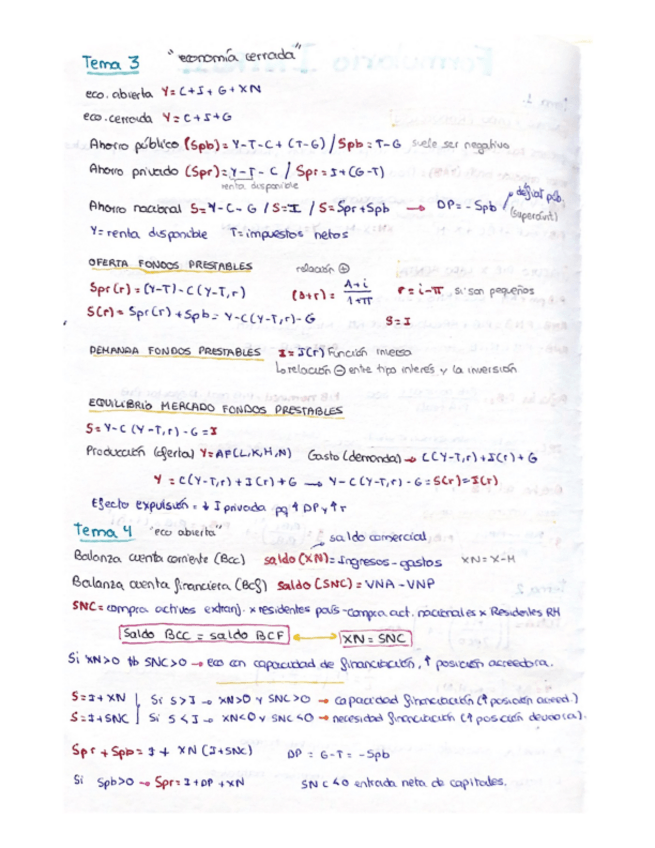 Tema 3 "economía cerrada"
eco. abierta Y = C + I + G + XN
eco. cerrada Y = C + I + G
Ahorro público (Spb) = Y-T-C + (T-G) / Spb = T-G suele ser negativo
Ahorro privado (Spr) = Y-T - C / Spr = I + (G-T)
renta disponible
Ahorro nacional S = Y-C-G / S=I / S = Spr + Spb → DP = - Spb déficit púb. (superávit)
Y = renta disponible T = impuestos netos
OFERTA FONDOS PRESTABLES relación ⊕
Spr (r) = (Y-T) - C (Y-T, r) (1+r) = 1+i / 1+π r = i-π, si son pequeños
S(r) = Spr (r) + Spb = Y-C(Y-T, r) - G S=I
DEMANDA FONDOS PRESTABLES I = I(r) Función inversa
↳ relación ⊖ entre tipo interés y la inversión
EQUILIBRIO MERCADO FONDOS PRESTABLES
S = Y-C (Y-T, r) - G = I
Producción (oferta) Y = AF(L, K, H, N) Gasto (demanda) → C(Y-T, r) + I(r) + G
Y = C(Y-T, r) + I(r) + G → Y - C(Y-T, r) - G = S(r) = I(r)
Efecto expulsión = ↓ I privada pq ↑ DP y ↑ r
Tema 4 "eco abierta"
saldo comercial
Balanza cuenta corriente (Bcc) saldo (XN) = Ingresos - gastos XN = X-M
Balanza cuenta financiera (Bcf) Saldo (SNC) = VNA - VNP
SNC = compra activos extranj. x residentes país - compra act. nacionales x Residentes RM
Saldo BCC = saldo BCF ↔ XN = SNC
Si XN>0 SNC>0 → eco con capacidad de financiación, ↑ posición acreedora.
S = I + XN Si S > I → XN>0 y SNC>0 → capacidad financiación (↑ posición acreed.)
S = I + SNC Si S < I → XN<0 y SNC<0 → necesidad financiación (↑ posición deudora).
Spr + Spb = I + XN (I+SNC) DP = G-T = -Spb
Si Spb>0 → Spr = I + DP + XN SNC <0 entrada neta de capitales.